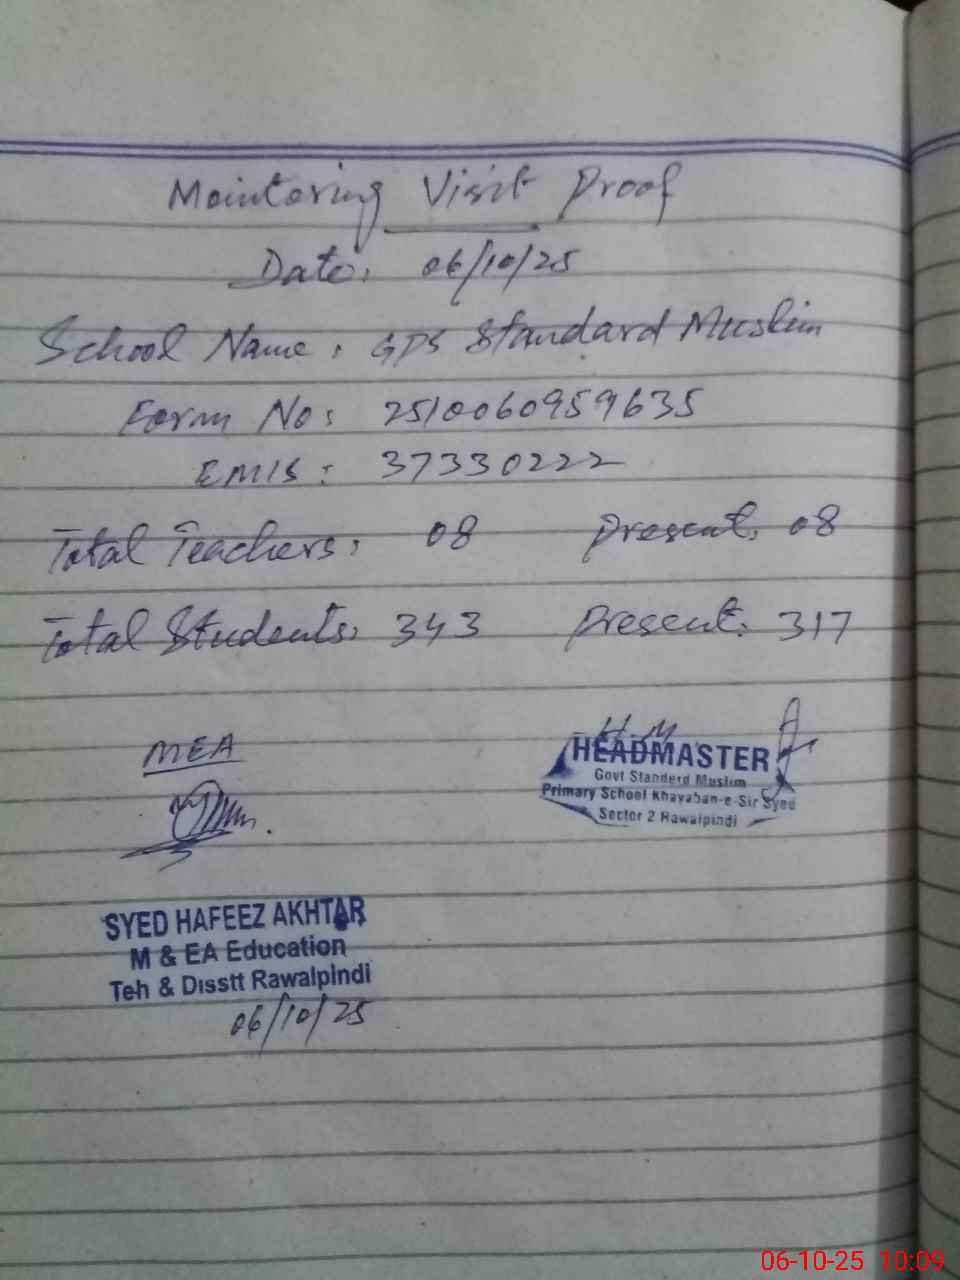 Monitoring Visit Proof
Date: 06/10/25
School Name: GPS Standard Muslim
Form No: 2510060959635
EMIS: 37330222
Total Teachers: 08 Present: 08
Total Students: 343 Present: 317
MEA
H.M
HEADMASTER
Govt Standerd Muslim
Primary School Khayaban-e-Sir Syed
Sector 2 Rawalpindi
SYED HAFEEZ AKHTAR
M & EA Education
Teh & Disstt Rawalpindi
06/10/25
06-10-25 10:09